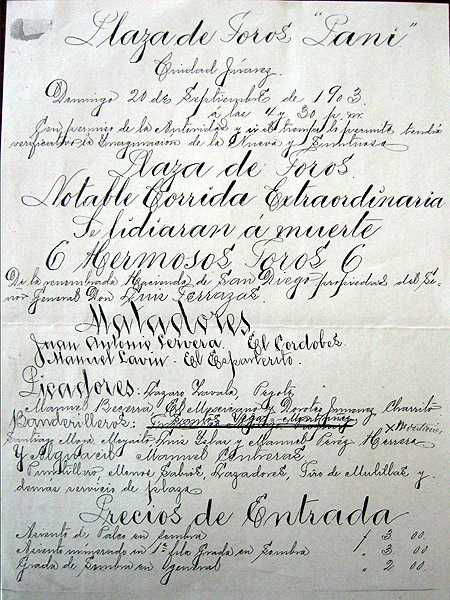 Plaza de Toros "Pani"
Ciudad Juárez.
Domingo 20 de Septiembre de 1903.
á las 4 y 30 p.m.
Con permiso de la Autoridad y si el tiempo lo permite tendrá
verificativo la Inauguracion de la Nueva y Suntuosa
Plaza de Toros.
Notable Corrida Extraordinaria
Se lidiaran á muerte
6 Hermosos Toros 6
De la renombrada Hacienda de San Diego propiedad del Se-
ñor General Don Luis Terrazas
Matadores
Juan Antonio Cervera. El Cordobes.
Manuel Lavin. El Esparterito.
Picadores: Lazaro Zavala Pegote
Manuel Becerra, El Mexicano y Doroteo Jimenez Charrito
Banderilleros:
Santiago Moya Luis Islas y Manuel Perez Herrera
Y Alguacil Manuel Contreras
Puntillero, Monos Sabios, Lazadores, Tiro de Mulillas y
demás servicio de plaza
Precios de Entrada
Asiento de Palco en Sombra $ 3 00.
Asiento numerado en 1ª fila Grada en Sombra " 3. 00
Grada de Sombra en General " 2 00